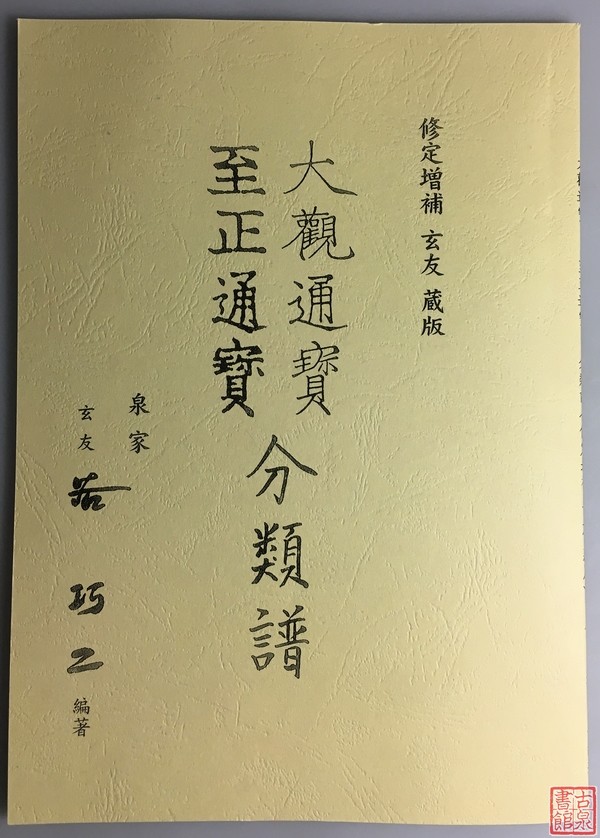 修定增補 玄友 蔵版
大觀通寶
至正通寶
分類譜
泉家
玄友 谷 巧二 編著
古泉
書館